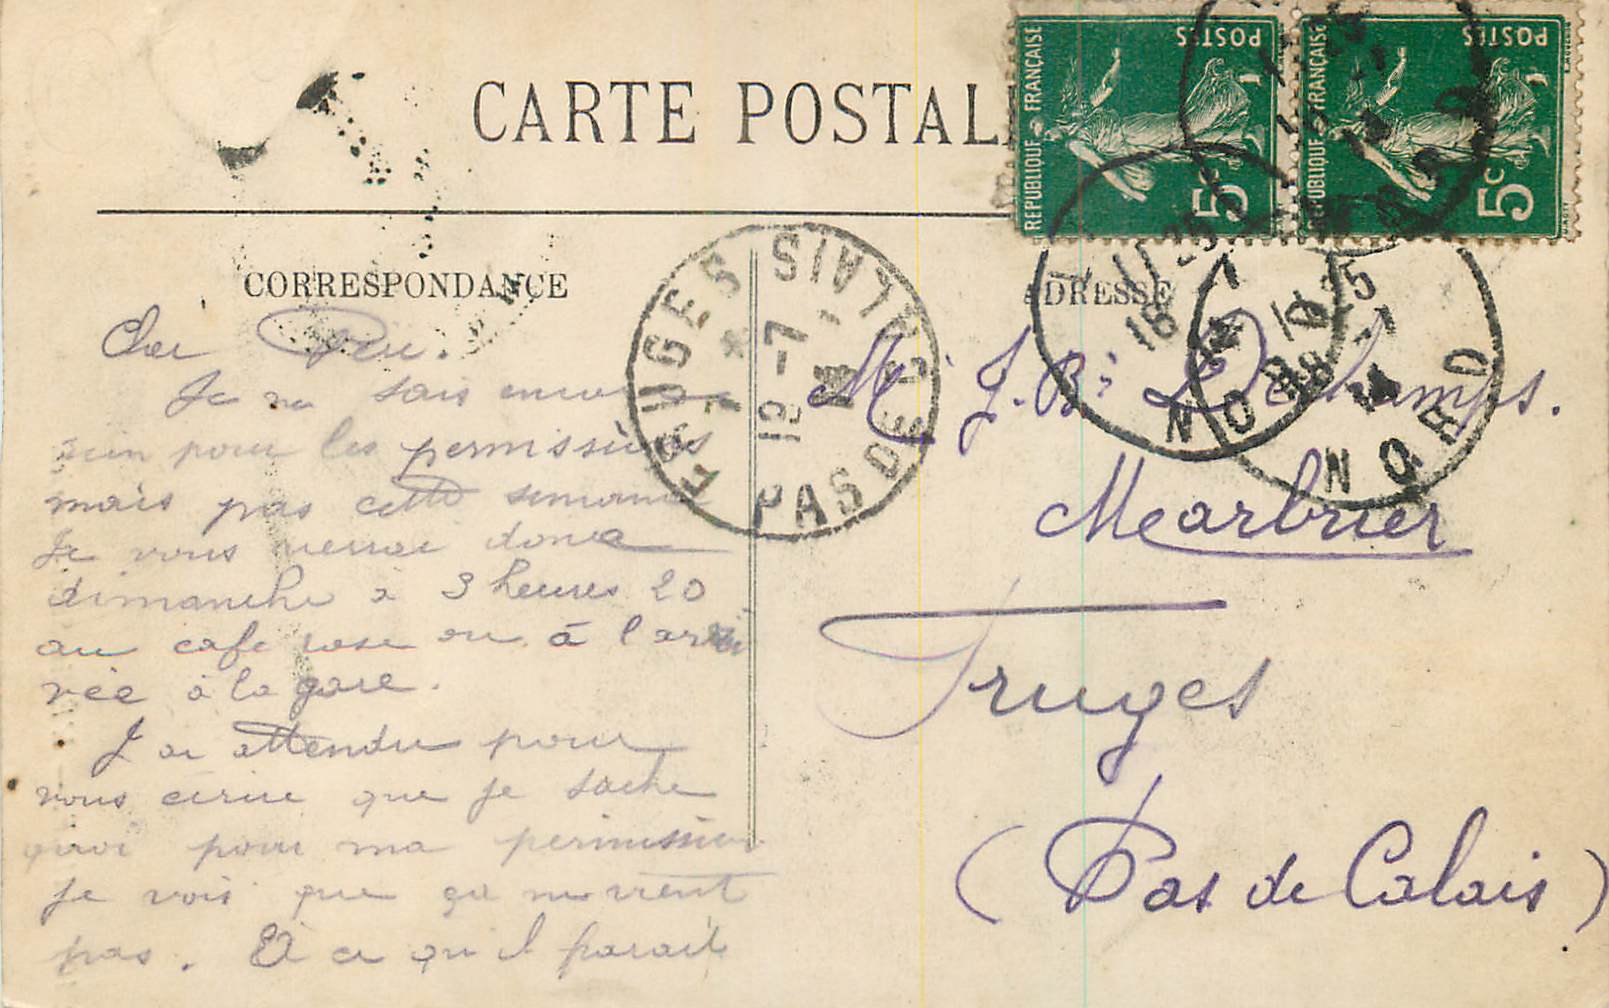 CARTE POSTAL
REPUBLIQUE FRANÇAISE
POSTES
5c
REPUBLIQUE FRANÇAISE
POSTES
5c
CORRESPONDANCE
ADRESSE
FRUGES
PAS DE CALAIS
12-7
14
11 25
18 -7
14
NORD
11 25
18 -7
14
NORD
Cher Père.
Je ne sais encore
rien pour les permissions
mais pas cette semaine
Je vous verrai donc
dimanche a 3 heures 20
au cafe rose ou à l'arri
vée à la gare.
J'ai attendu pour
vous écrire que je sache
quoi pour ma permission
je vois que ça ne vient
pas. Et a ce qu'il parait
Mr J. Bte Dechamps.
Marbrier
Fruges
(Pas de Calais)